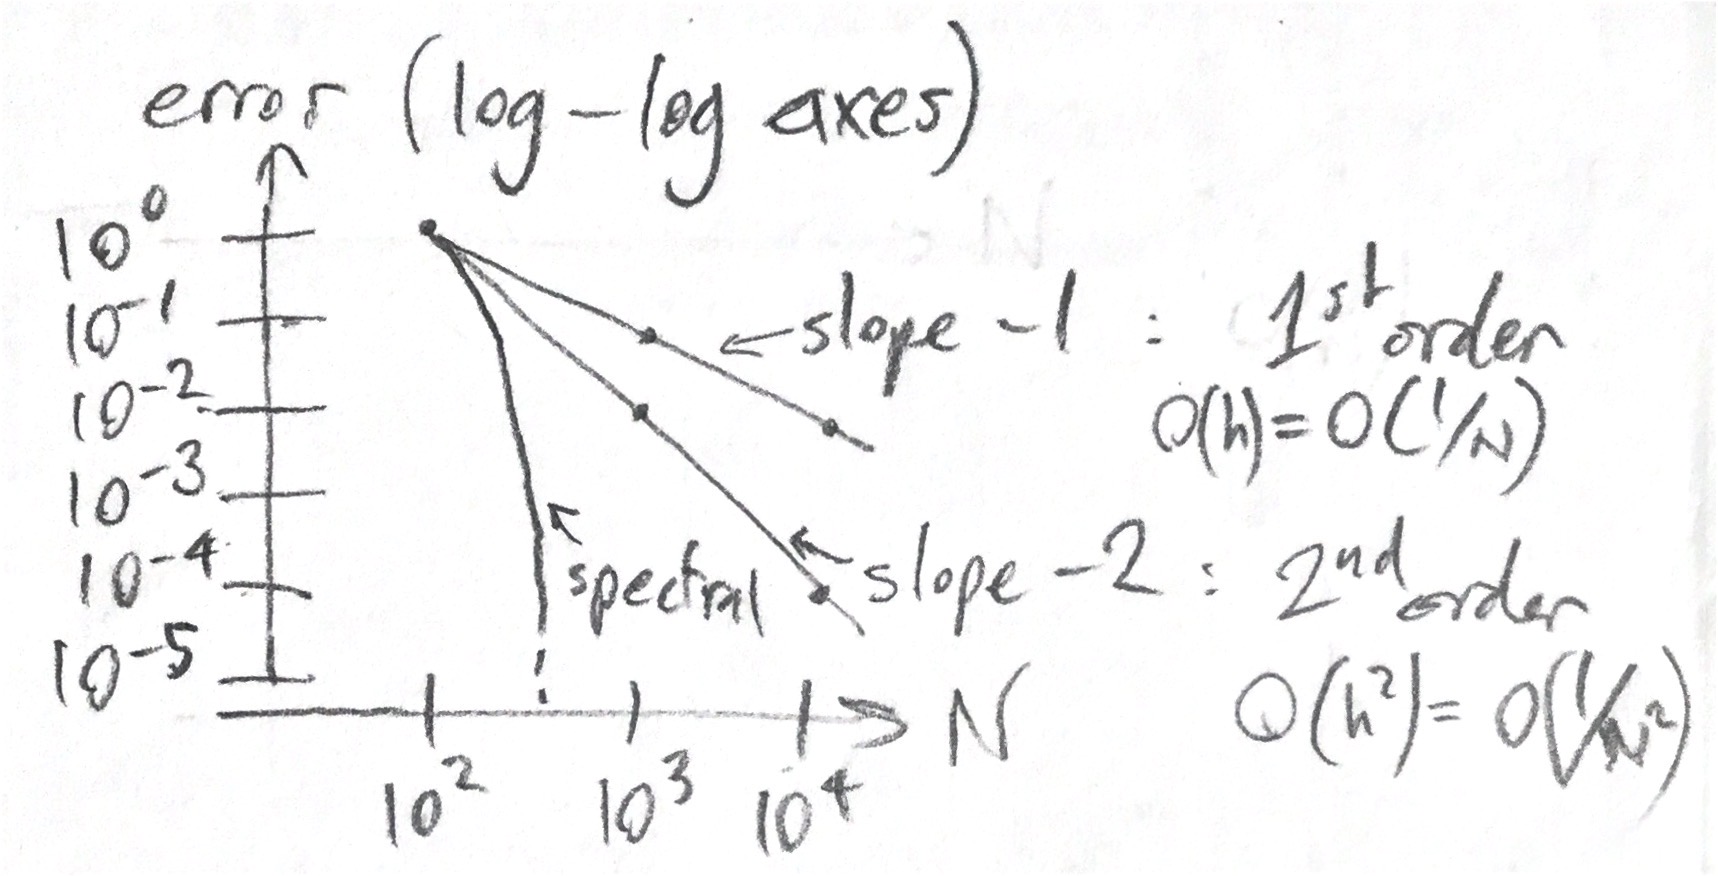 error (log-log axes)
10⁰
10⁻¹
10⁻²
10⁻³
10⁻⁴
10⁻⁵
←slope -1 : 1st order
O(h)=O(1/N)
spectral
slope -2 : 2nd order
O(h²)=O(1/N²)
N
10² 10³ 10⁴